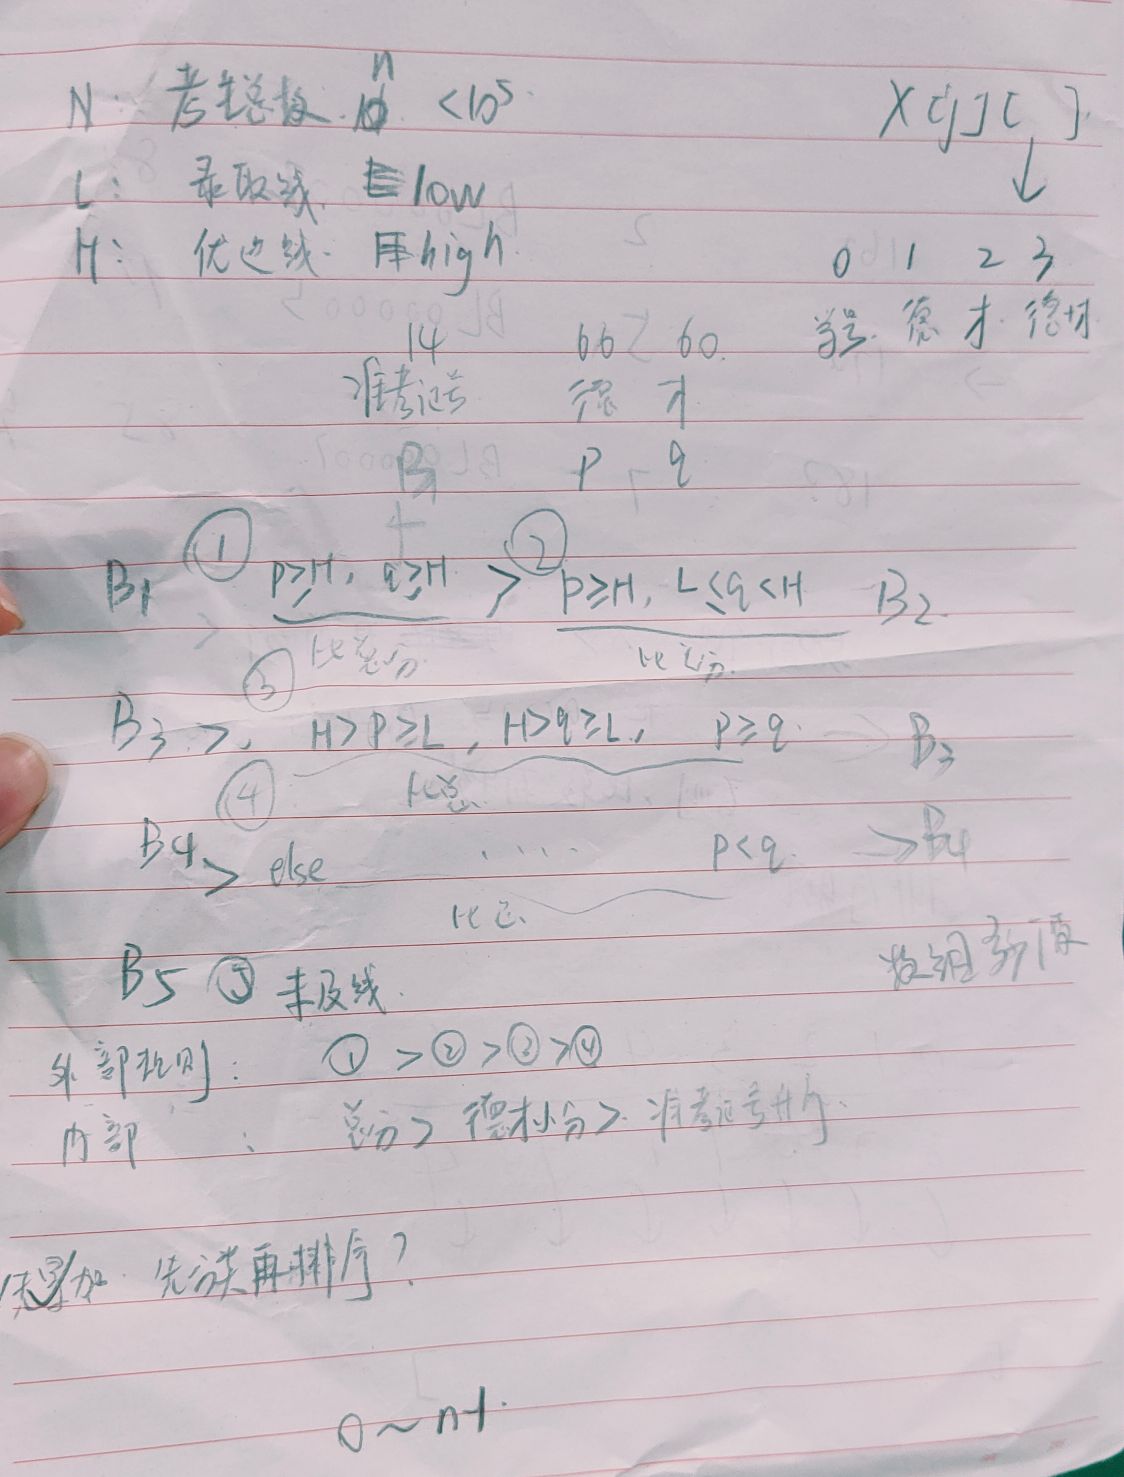 N: 考生总数 n <10⁵. X[j][ ].
L: 录取线. low
H: 优先线. high.
0 1 2 3
学号. 德 才. 德才
14 66 60.
准考证号 德 才
B P q
B1 ① P≥H, q≥H > ② P≥H, L≤q<H B2.
比总分 比总分.
B3 >. ③ H>P≥L, H>q≥L, P≥q. B3
比总.
B4 > ④ else ..... P<q. → B4
比总.
B5 ⑤ 未及线.
外部规则: ① > ② > ③ > ④
内部 : 总分> 德才小分>. 准考证号升序.
先分类再排序?
0~n-1.